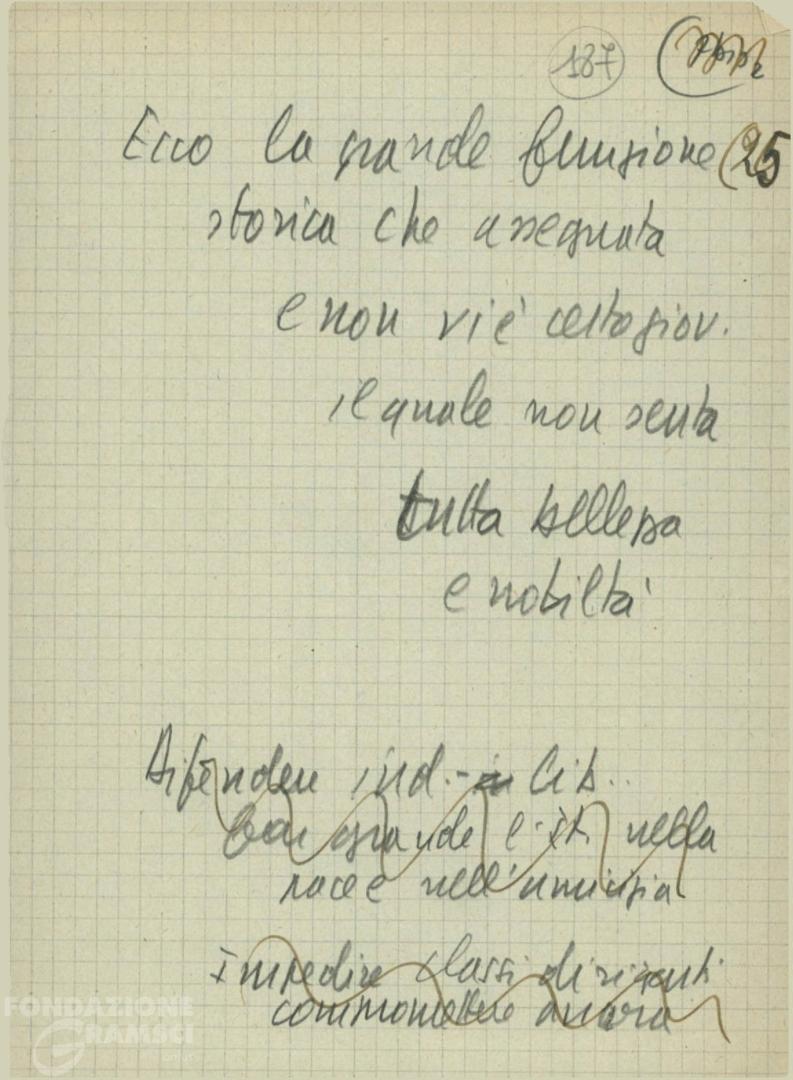 187
25
Ecco la grande funzione
storica che assegnata
e non vi è certo giov.
il quale non senta
tutta bellezza
e nobiltà
Difendere ind. - Lib..
Far grande l'It. nella
pace e nell'amicizia
Impedire classi dirigenti
commettere ancora
FONDAZIONE
GRAMSCI